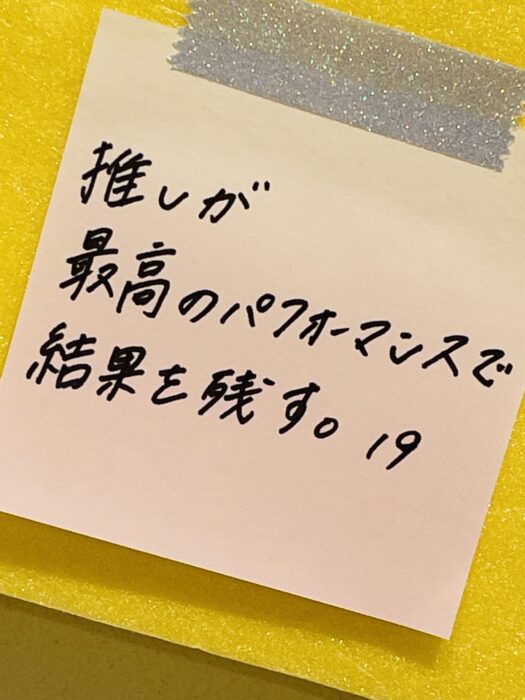 推しが
最高のパフォーマンスで
結果を残す。19